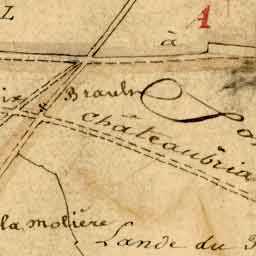 L
1
à
Brault
à
Châteaubria
la molière
Lande du